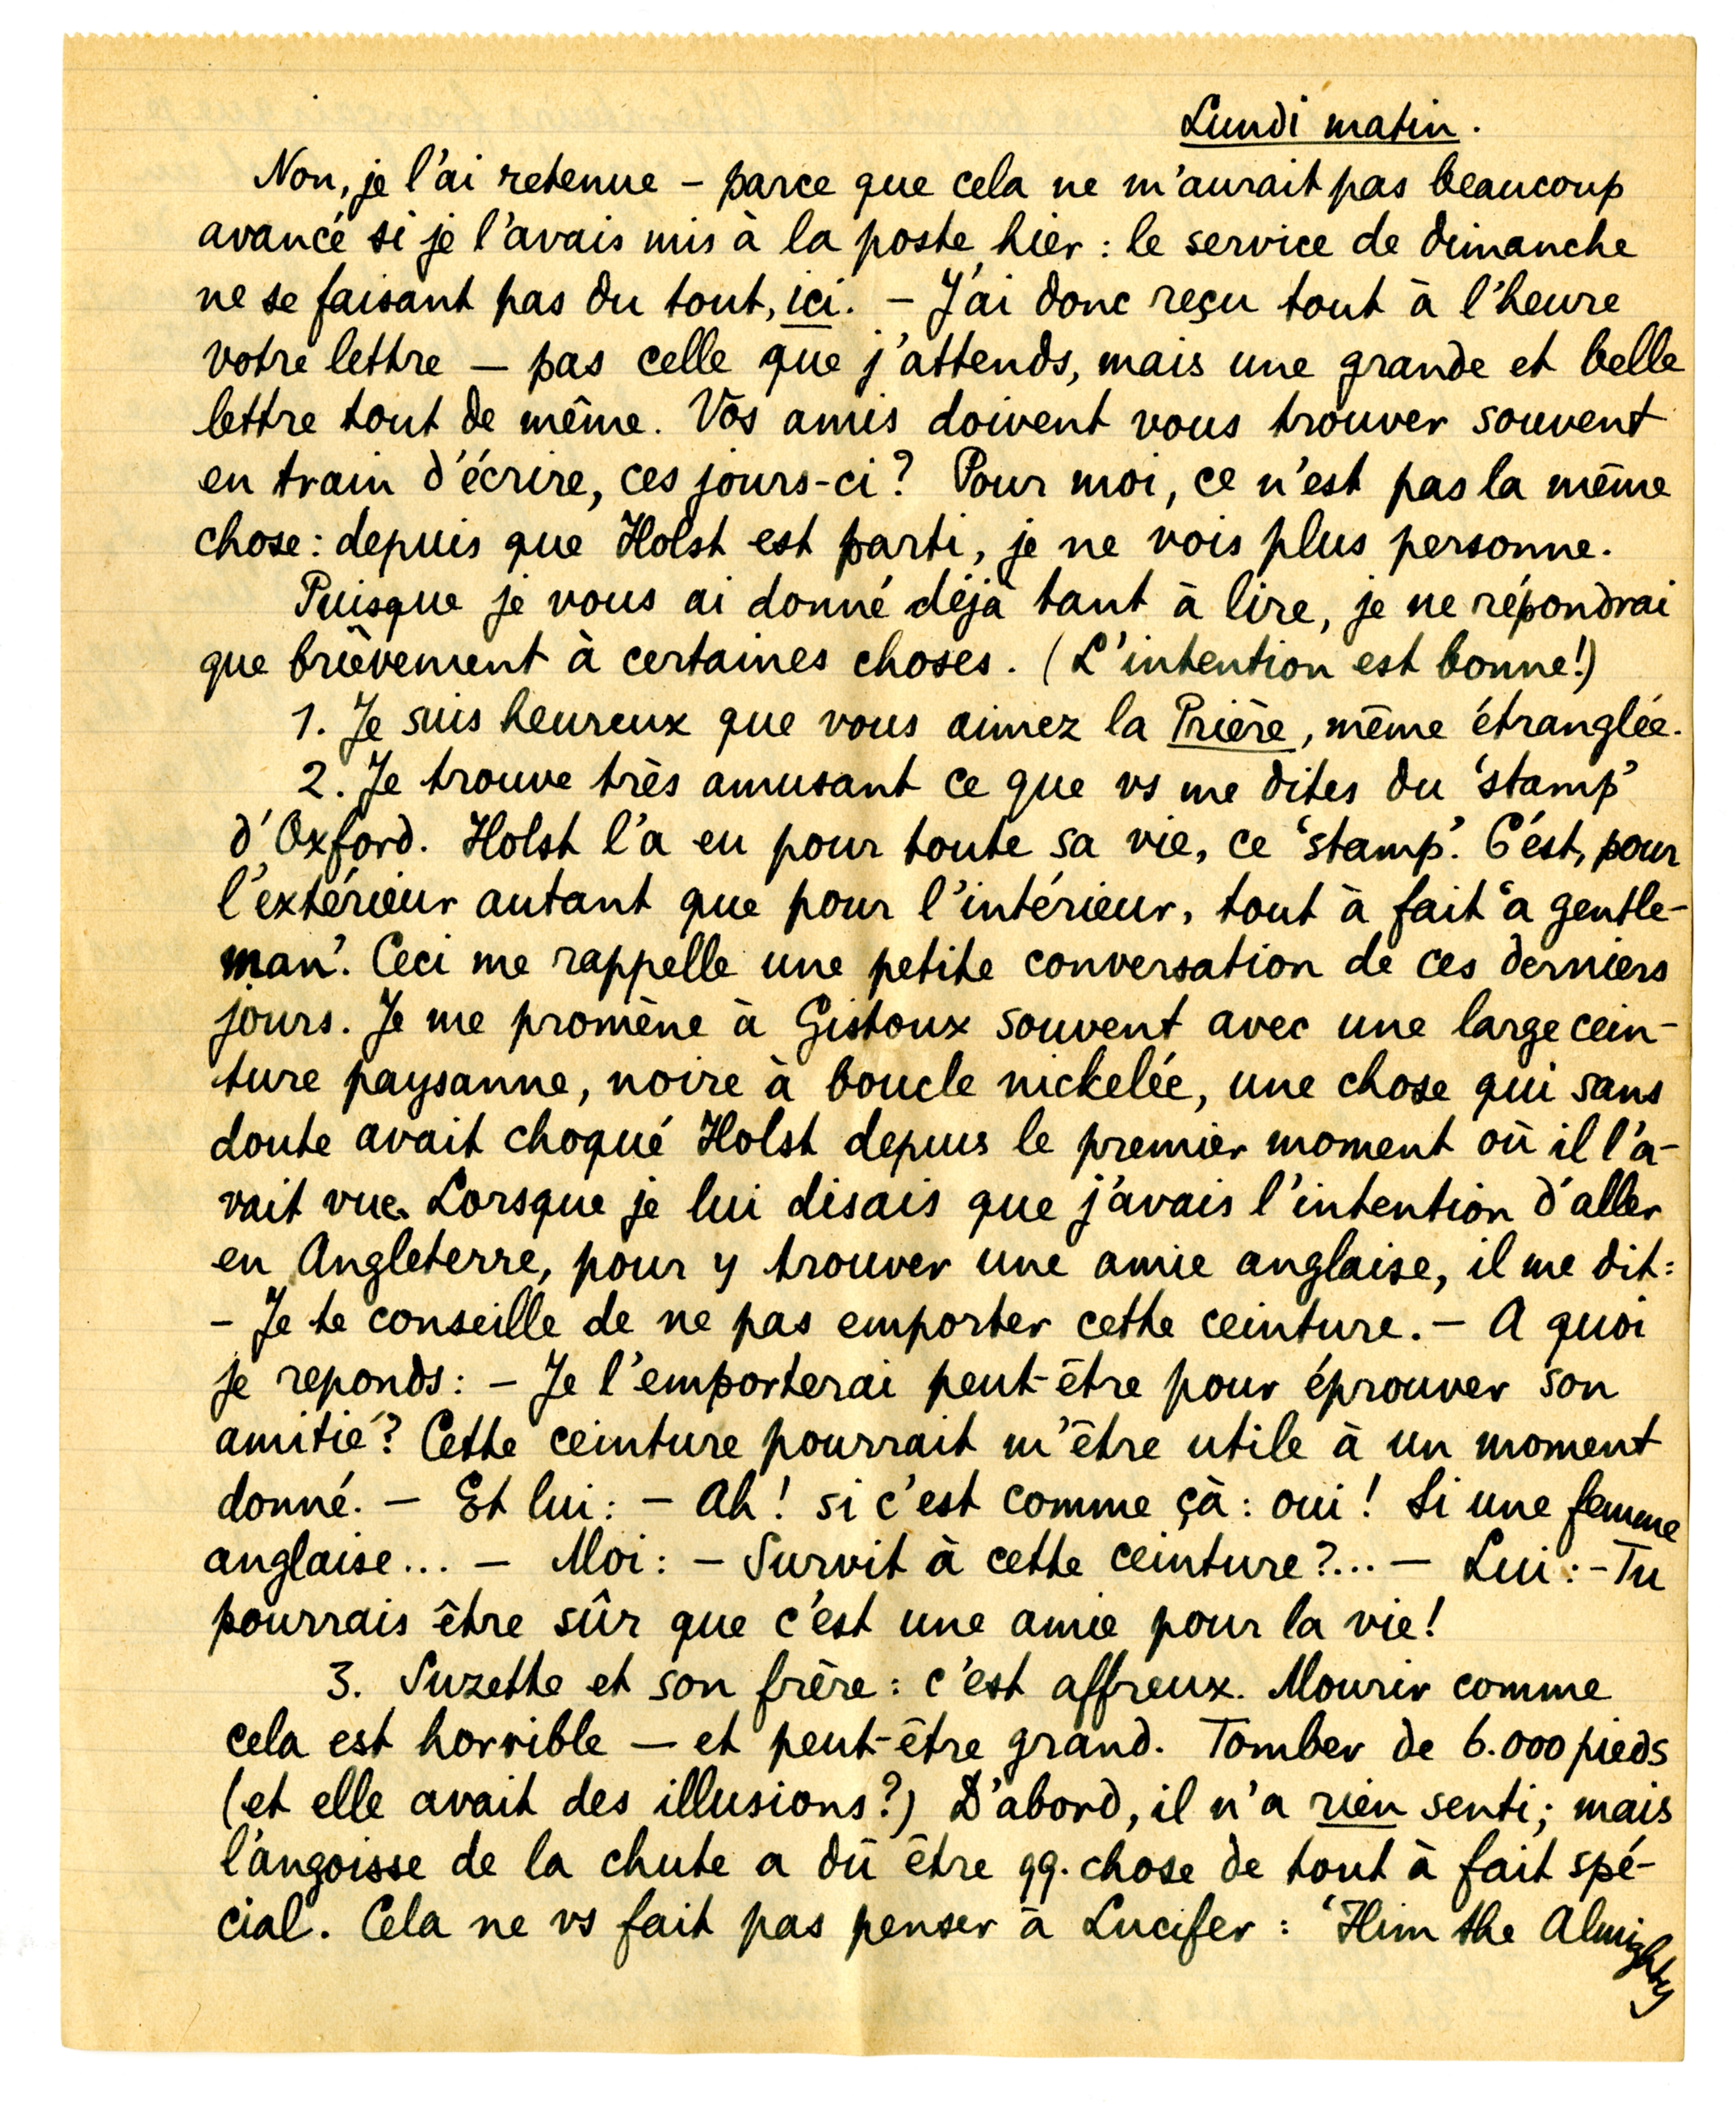 Lundi matin.
Non, je l'ai retenue – parce que cela ne m'aurait pas beaucoup
avancé si je l'avais mis à la poste hier : le service de dimanche
ne se faisant pas du tout, ici. – J'ai donc reçu tout à l'heure
votre lettre – pas celle que j'attends, mais une grande et belle
lettre tout de même. Vos amis doivent vous trouver souvent
en train d'écrire, ces jours-ci ? Pour moi, ce n'est pas la même
chose : depuis que Holst est parti, je ne vois plus personne.
Puisque je vous ai donné déjà tant à lire, je ne répondrai
que brièvement à certaines choses. (L'intention est bonne!)
1. Je suis heureux que vous aimez la Prière, même étranglée.
2. Je trouve très amusant ce que vs me dites du 'stamp'
d'Oxford. Holst l'a eu pour toute sa vie, ce 'stamp'. C'est, pour
l'extérieur autant que pour l'intérieur, tout à fait 'a gentle-
man'. Ceci me rappelle une petite conversation de ces derniers
jours. Je me promène à Gistoux souvent avec une large cein-
ture paysanne, noire à boucle nickelée, une chose qui sans
doute avait choqué Holst depuis le premier moment où il l'a-
vait vue. Lorsque je lui disais que j'avais l'intention d'aller
en Angleterre, pour y trouver une amie anglaise, il me dit :
– Je te conseille de ne pas emporter cette ceinture. – A quoi
je reponds : – Je l'emporterai peut-être pour éprouver son
amitié ? Cette ceinture pourrait m'être utile à un moment
donné. – Et lui : – Ah ! si c'est comme çà : oui ! Si une femme
anglaise... – Moi : – Survit à cette ceinture ?... – Lui : – Tu
pourrais être sûr que c'est une amie pour la vie !
3. Suzette et son frère : c'est affreux. Mourir comme
cela est horrible – et peut-être grand. Tomber de 6.000 pieds
(et elle avait des illusions ?) D'abord, il n'a rien senti ; mais
l'angoisse de la chute a dû être qq. chose de tout à fait spé-
cial. Cela ne vs fait pas penser à Lucifer : 'Him the Almighty